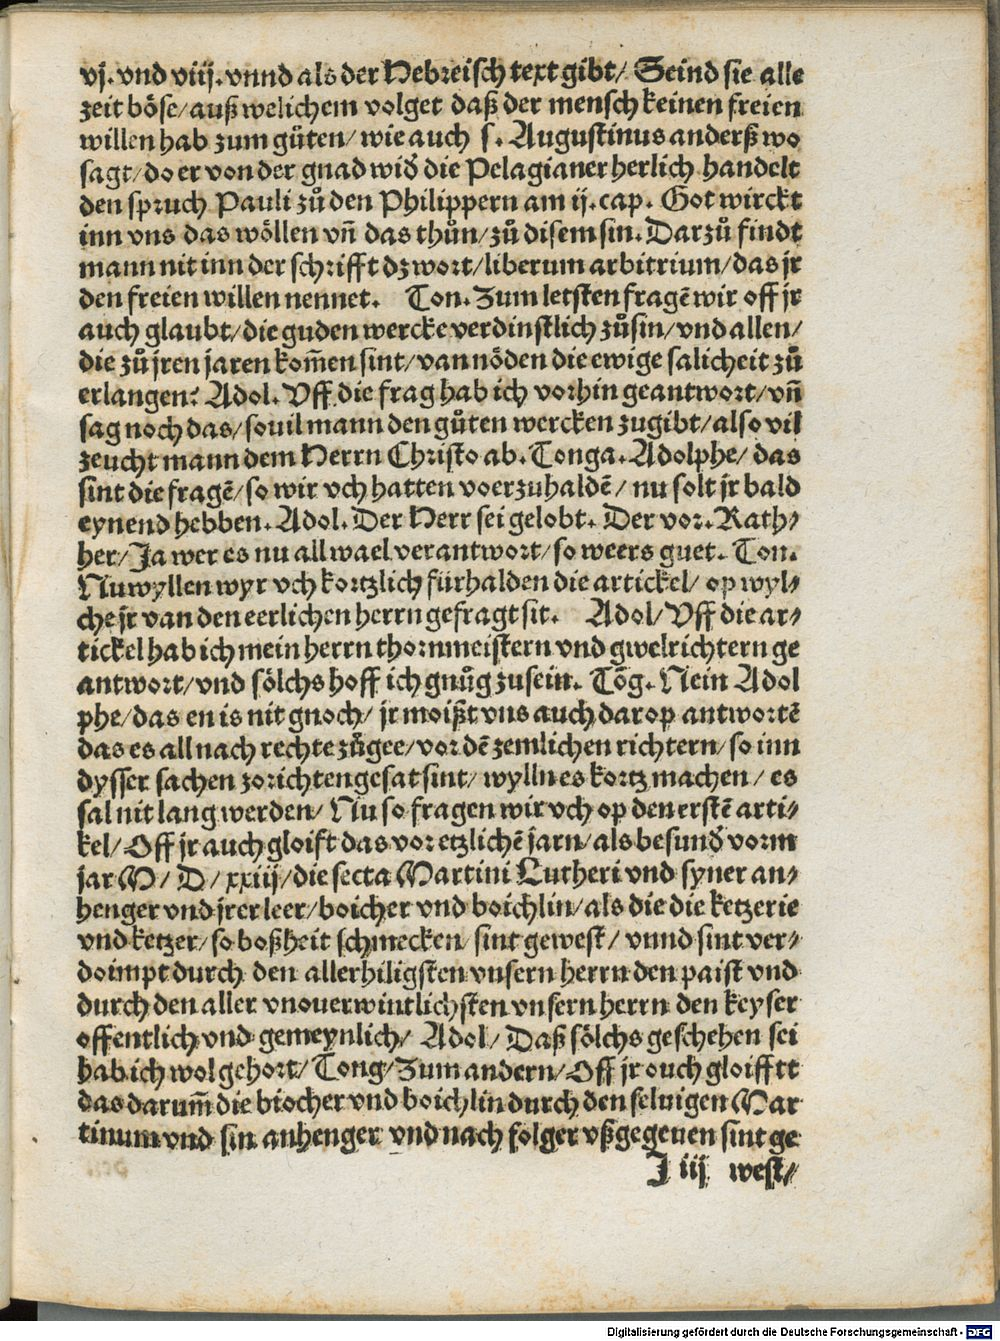 vj. vnd viij. vnnd als der Hebreisch text gibt/ Seind sie alle
zeit böse/ auß welichem volget daß der mensch keinen freien
willen hab zum gůten/ wie auch s. Augustinus anderß wo
sagt/ do er von der gnad wid̕ die Pelagianer herlich handelt
den spruch Pauli zů den Philippern am ij. cap. Got wirckt
inn vns das wöllen vñ das thůn/ zů disem sin. Darzů findt
mann nit inn der schrifft dz wort/ liberum arbitrium/ das jr
den freien willen nennet. Ton. Zum letsten fragẽ wir off jr
auch glaubt/ die guden wercke verdinstlich zůsin/ vnd allen/
die zů jren jaren kom̃en sint/ van nöden die ewige salicheit zů
erlangen? Adol. Vff die frag hab ich vorhin geantwort/ vñ
sag noch das/ souil mann den gůten wercken zugibt/ also vil
zeucht mann dem Herrn Christo ab. Tonga. Adolphe/ das
sint die fragẽ/ so wir vch hatten voerzuhaldẽ/ nu solt jr bald
eynend hebben. Adol. Der Herr sei gelobt. Der vor. Rath⸗
her/ Ja wer es nu all wael verantwort/ so weers guet. Ton.
Nu wyllen wyr vch kortzlich fürhalden die artickel/ op wyl⸗
che jr van den eerlichen herrn gefragt sit. Adol/ Vff die ar⸗
tickel hab ich mein herrn thornmeistern vnd gwelrichtern ge
antwort/ vnd sölchs hoff ich gnůg zusein. Tõg. Nein Adol
phe/ das en is nit gnoch/ jr moißt vns auch dar op antwortẽ
das es all nach rechte zůgee/ vor dẽ zemlichen richtern/ so inn
dysser sachen zorichten gesat sint/ wylln es kortz machen/ es
sal nit lang werden/ Nu so fragen wir vch op den erstẽ arti⸗
kel/ Off jr auch gloift das vor etzlichẽ jarn/ als besund̕ vorm
jar M/ D/ xxiij/ die secta Martini Lutheri vnd syner an⸗
henger vnd jrer leer/ boicher vnd boichlin/ als die die ketzerie
vnd ketzer/ so boßheit schmecken/ sint gewest/ vnnd sint ver⸗
doimpt durch den allerhiligsten vnsern herrn den paist vnd
durch den aller vnouerwintlichsten vnsern herrn den keyser
offentlich vnd gemeynlich/ Adol/ Daß sölchs geschehen sei
hab ich wol gehort/ Tong/ Zum andern/ Off jr ouch gloifftt
das darum̃ die biocher vnd boichlin durch den seluigen Mar
tinum vnd sin anhenger vnd nach folger vßgegeuen sint ge
J iij west⸗
Digitalisierung gefördert durch die Deutsche Forschungsgemeinschaft - DFG